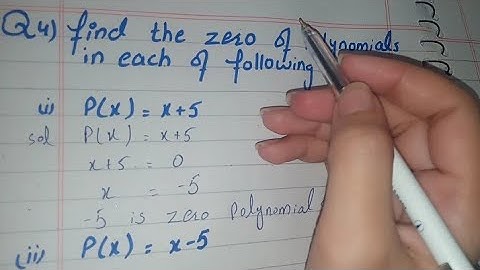 Q4) find the zero of polynomials
in each of following
(i) P(x) = x+5
sol P(x) = x+5
x+5 = 0
x = -5
-5 is zero polynomial
(ii) P(x) = x-5